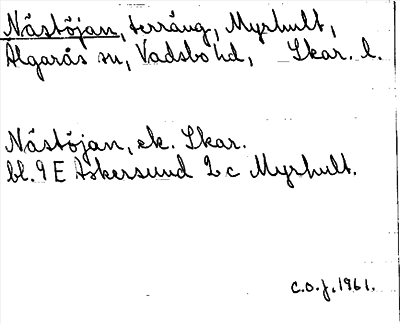 Nästöjan, terräng, Myrhult,
Älgarås sn, Vadsbo hd, Skar. l.
Nästöjan, ek. Skar.
bl. 9 E Askersund 2 c Myrhult.
c.o.f. 1961.